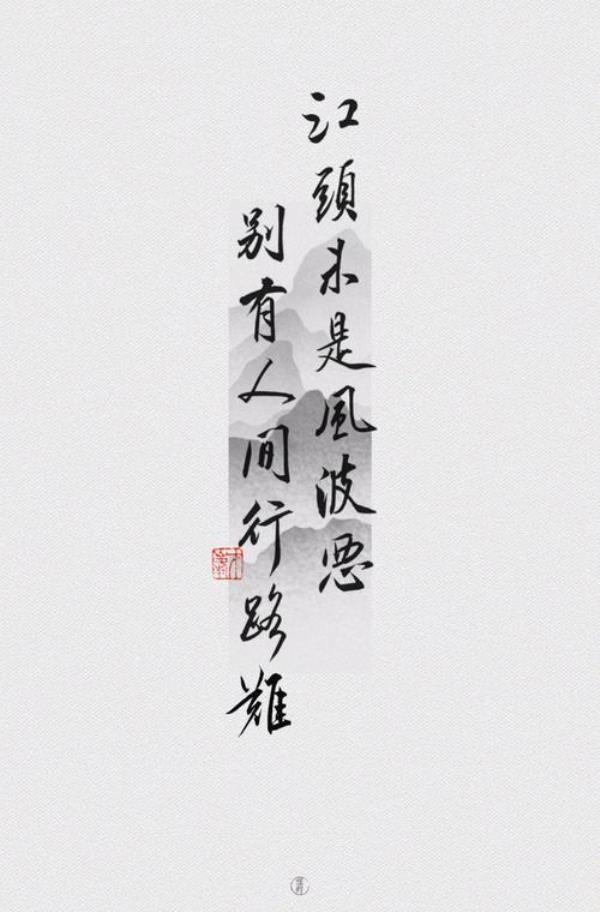 江頭未是風波惡
别有人间行路難